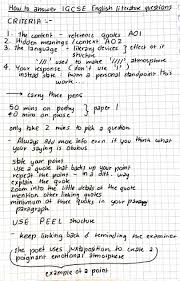 How to answer IGCSE English literature questions
CRITERIA :-
1. The content - reference quotes AO1
2. Hidden meanings / context AO2
3. The language - literary devices } effect of it
structure
'///' used to make '////' atmosphere
4. Your response (don't use 'I')
instead state : from a personal standpoint this
work...
→ carry three pens
50 mins on poetry } paper 1
40 mins on prose
only take 2 mins to pick a question
- Always add more info even if you think what
your saying is obvious
state your point
use a quote that backs up your point
repeat the point - in a diff. way
explain the quote
zoom into the little details of the quote
mention other linking quotes
minimum of three quotes in your
paragraph
USE PEEL structure
- keep linking back & reminding the examiner
- the poet uses juxtaposition to create a
poignant emotional atmosphere
example of a point